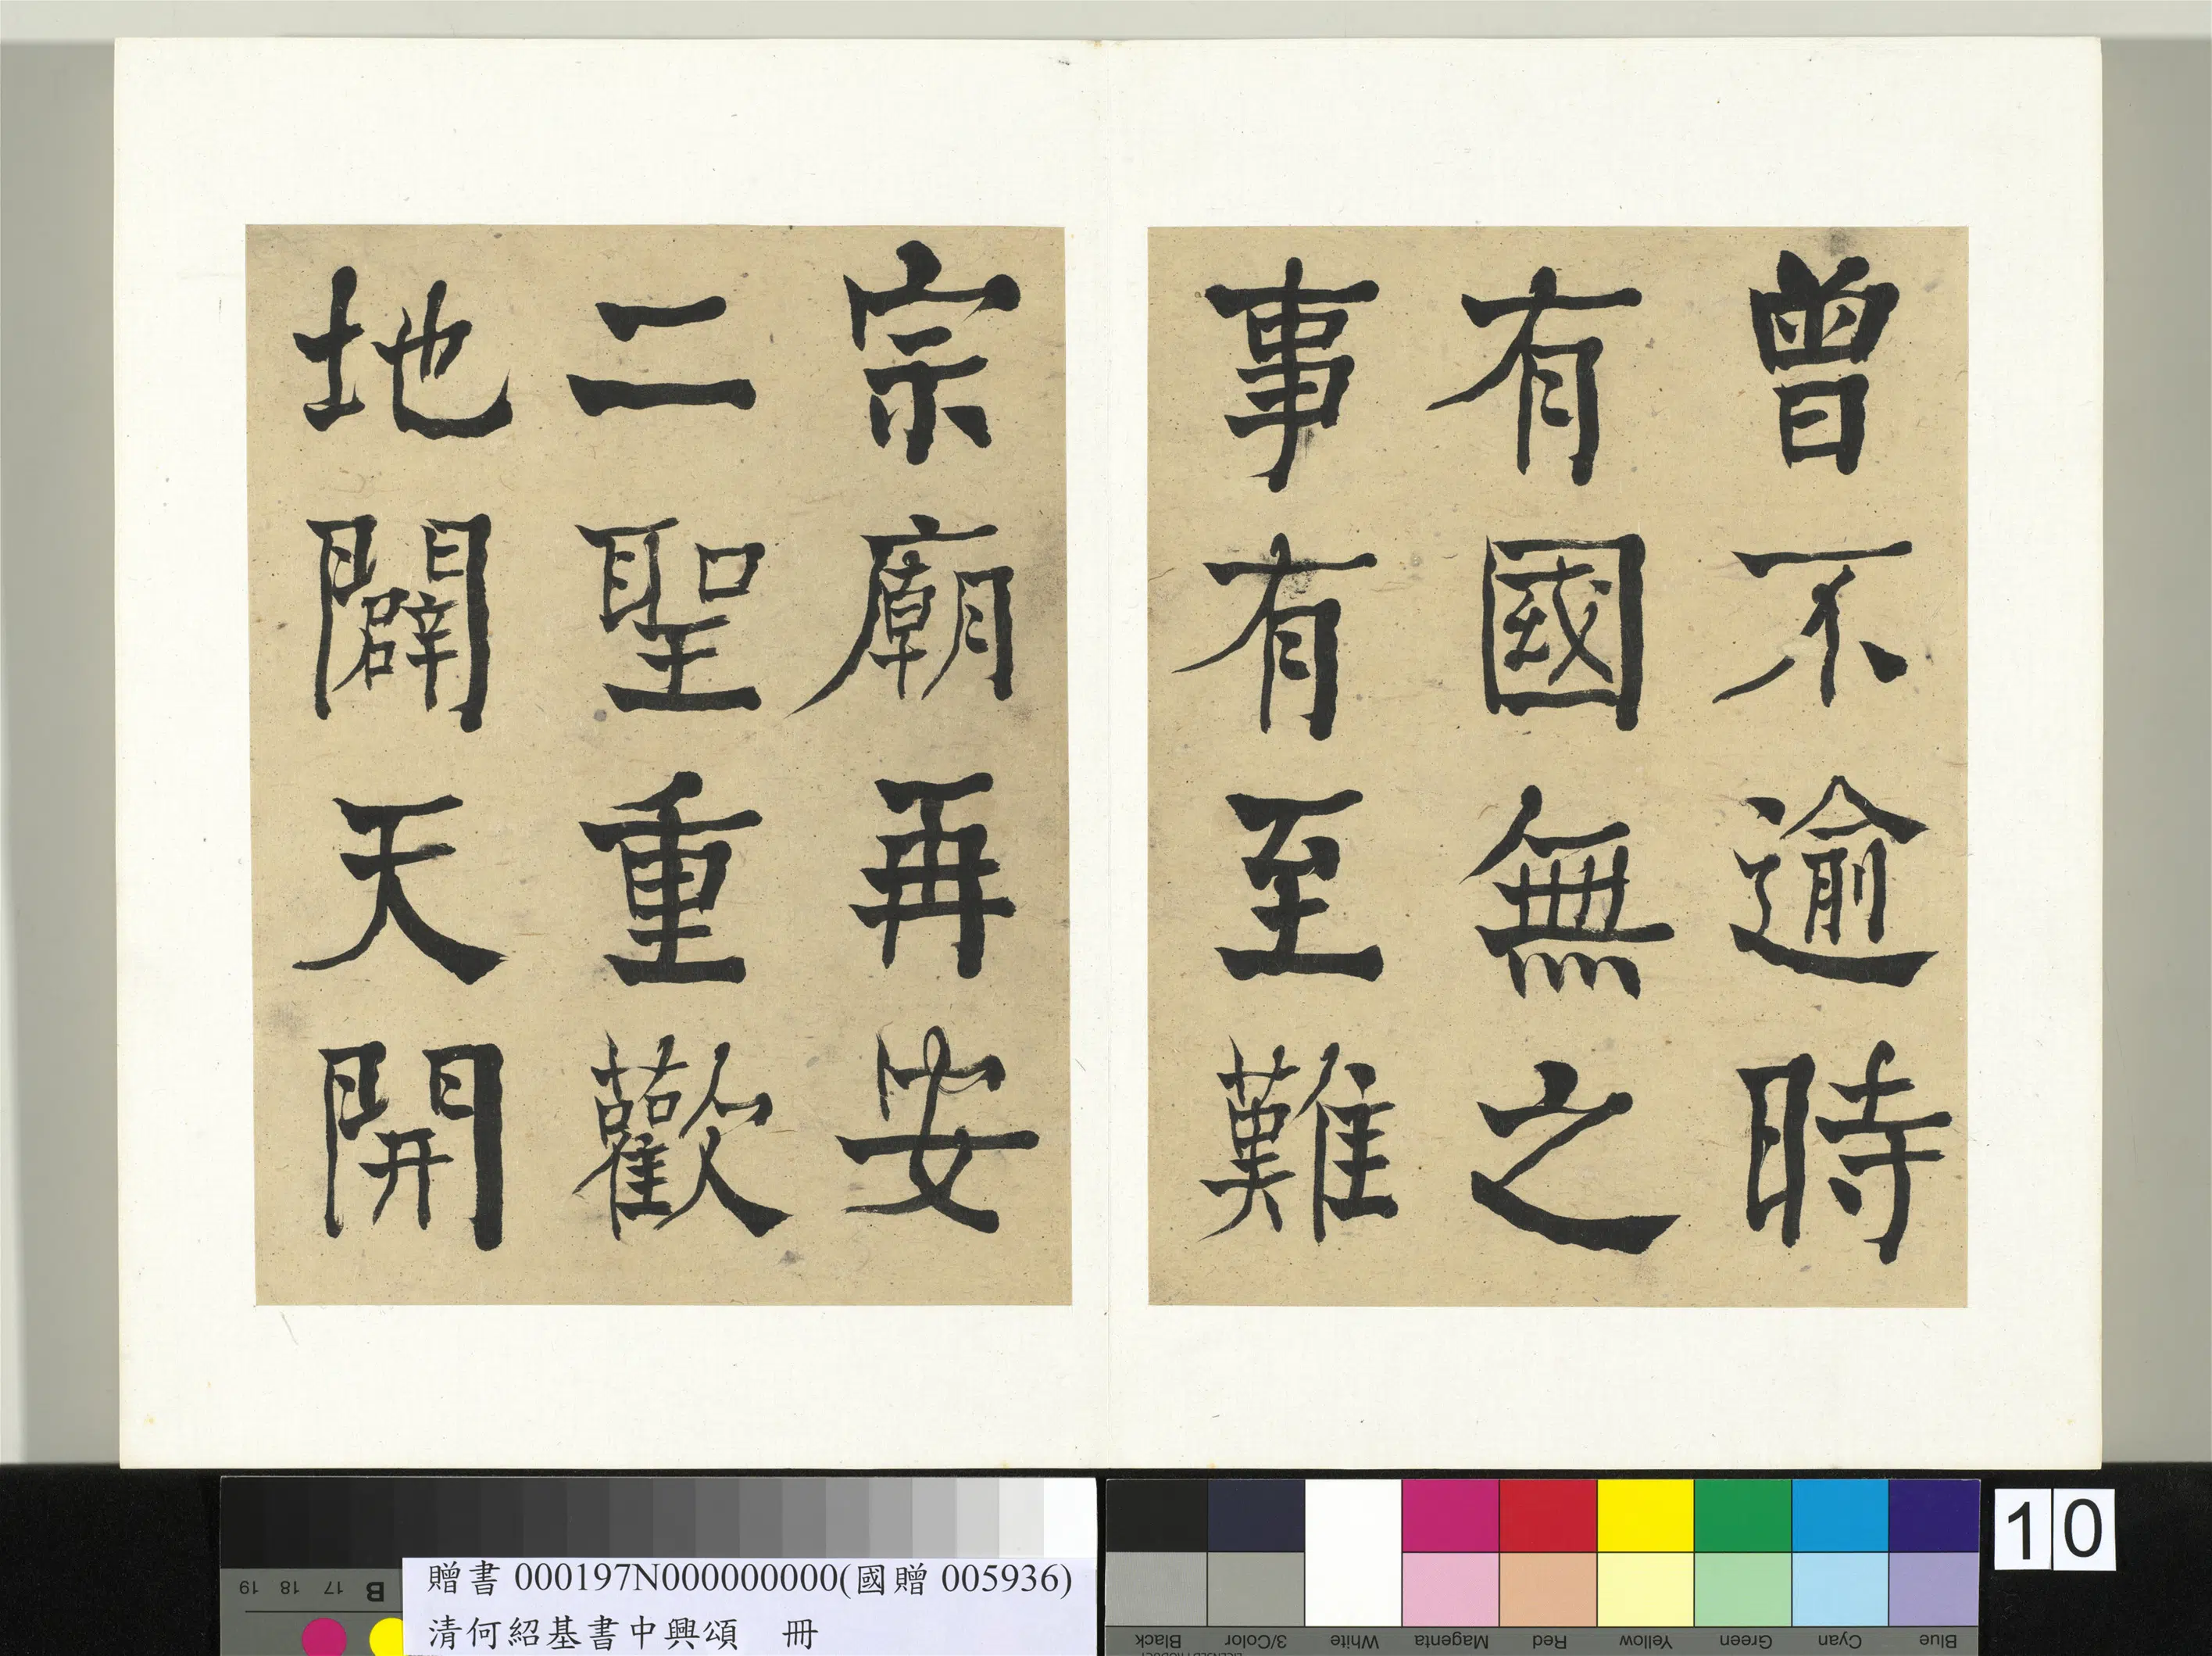 曾不逾時
有國無之
事有至難
宗廟再安
二聖重歡
地闢天開
贈書 000197N000000000(國贈 005936)
清何紹基書中興頌 冊
10
19 18 17 B
Black 3/Color White Magenta Red Yellow Green Cyan Blue